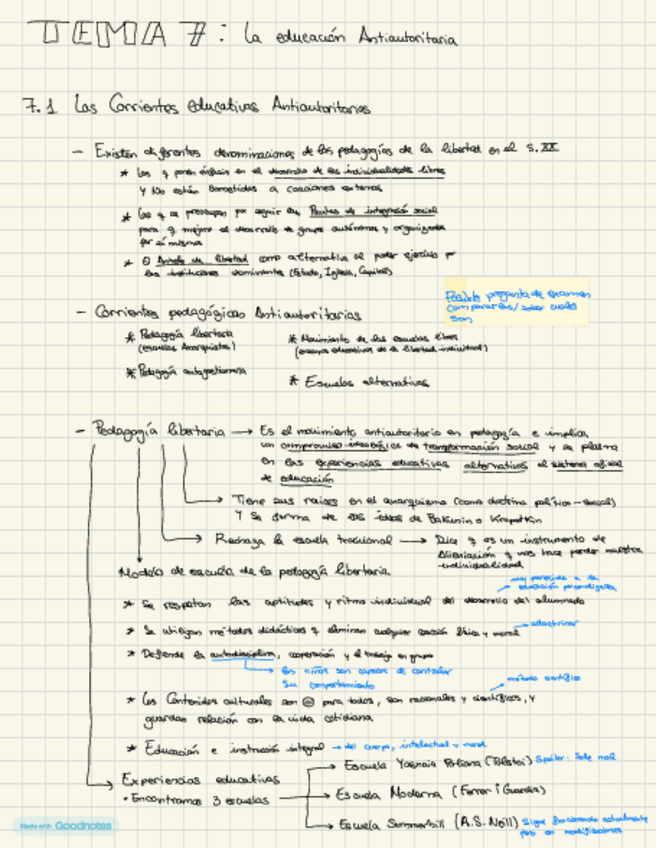 TEMA 7: La educación Antiautoritaria
7.1 Las Corrientes educativas Antiautoritarias
- Existen diferentes denominaciones de las pedagogías de la libertad en el S. XX
* Los q ponen énfasis en el desarrollo de las individualidades libres
Y No están sometidas a coacciones externas
* Las q se preocupan por seguir las Pautas de integración social
para q mejore el desarrollo de grupos autónomos y organizados
por sí mismos
* El Anhelo de libertad como alternativa al poder ejercido por
las instituciones dominantes (Estado, Iglesia, Capital)
Posible pregunta de examen
compararlas/saber cuales
son
- Corrientes pedagógicas Antiautoritarias
* Pedagogía libertaria
(escuelas Anarquistas)
* Movimiento de las escuelas libres
(ensayos educativos de la libertad individual)
* Pedagogía autogestionaria
* Escuelas alternativas
- Pedagogía libertaria → Es el movimiento antiautoritario en pedagogía e implica
un compromiso ideológico de transformación social y se plasma
en las experiencias educativas alternativas al sistema oficial
de educación
Tiene sus raíces en el anarquismo (como doctrina político-social)
Y se forma de las ideas de Bakunin o Kropotkin
Rechaza la escuela tracional → Dice q es un instrumento de
Alienación q nos hace perder nuestra
individualidad
Modelo de escuela de la pedagogía libertaria
muy parecidas a la
educación personalizada
* Se respetan las aptitudes y ritmo individual del desarrollo del alumnado
* Se utilizan métodos didácticos q eliminan cualquier coacción física y moral → adoctrinar
* Defiende la autodisciplina, cooperación y el trabajo en grupo
→ los niños son capaces de controlar
su comportamiento
método científico
* Los Contenidos culturales son = para todos, son racionales y científicos, y
guardan relación con la vida cotidiana
* Educación e instrucción integral → del cuerpo, intelectual y moral
Experiencias educativas
• Encontramos 3 escuelas
→ Escuela Yasnaia Poliana (Tolstoi) Spoiler: Sale mal
→ Escuela Moderna (Ferrer i Guardia)
→ Escuela Summerhill (A.S. Neill) Sigue funcionando actualmente
pero con modificaciones
Made with Goodnotes